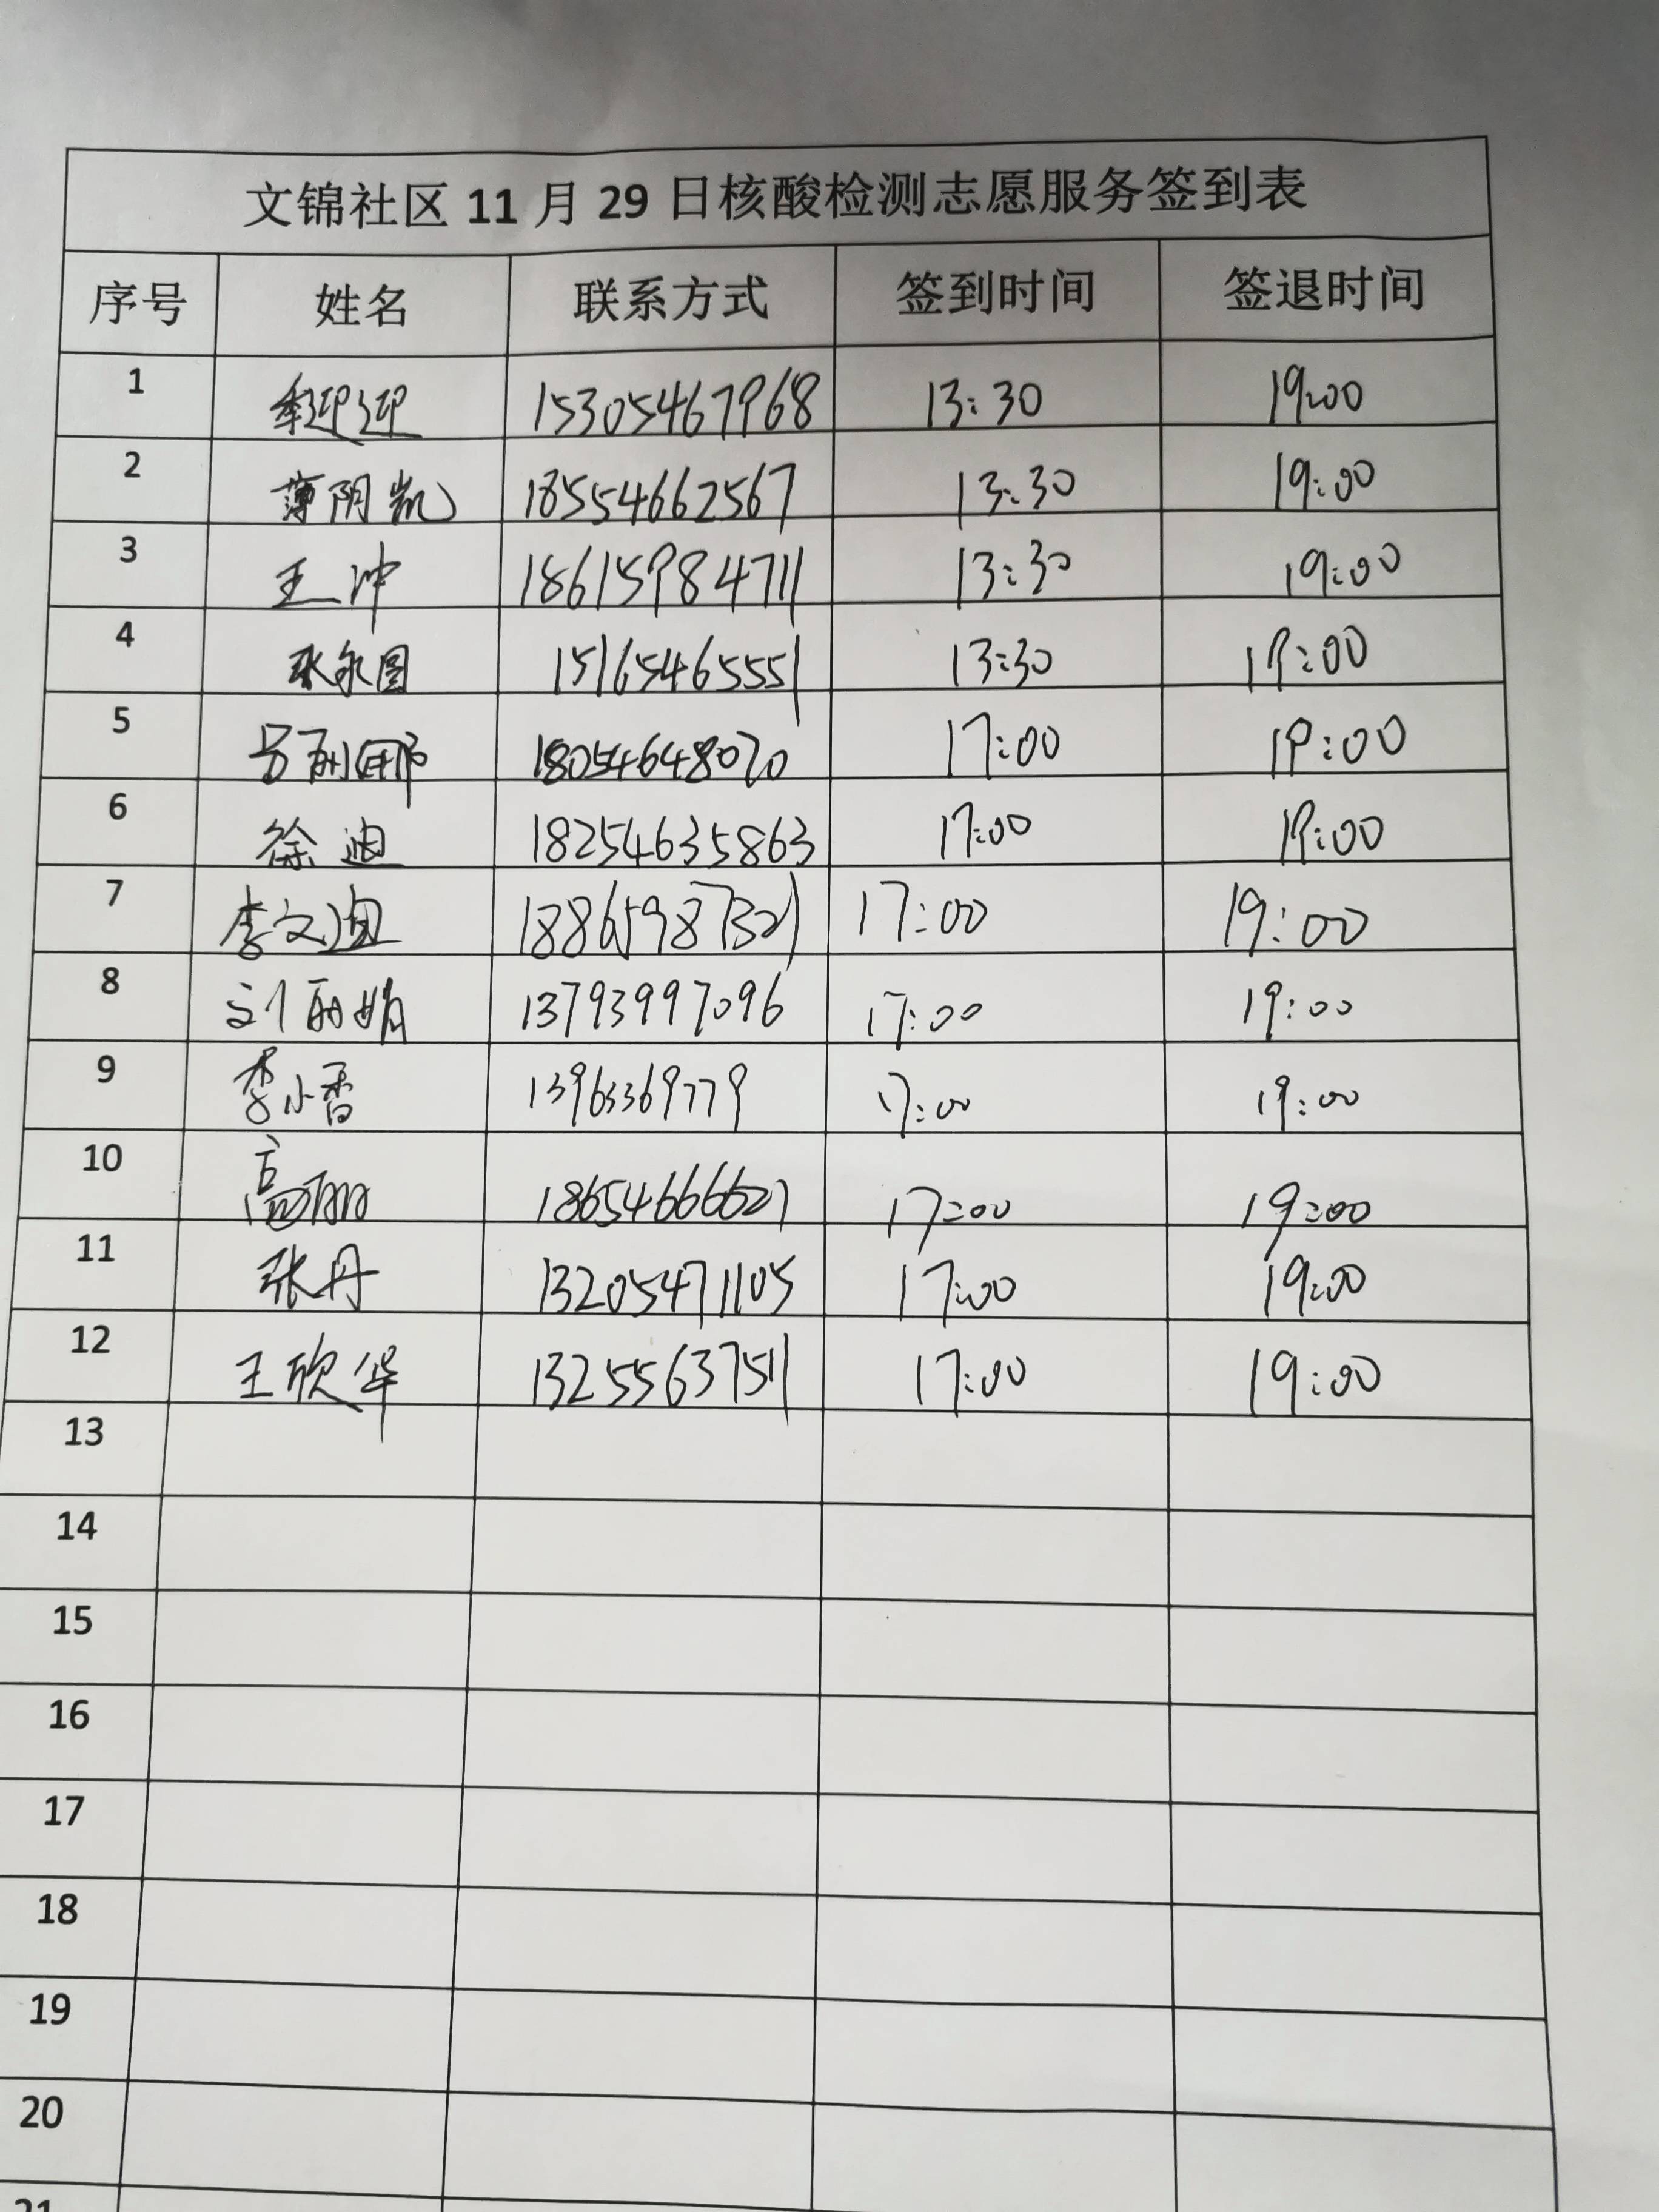 文锦社区 11 月 29 日核酸检测志愿服务签到表
序号 姓名 联系方式 签到时间 签退时间
1 15305467968 13:30 19:00
2 薄阴凯 18554662567 13:30 19:00
3 王冲 18615984711 13:30 19:00
4 张永圆 15165465551 13:30 19:00
5 18054648020 17:00 19:00
6 徐迪 18254635863 17:00 19:00
7 李文迪 18865987321 17:00 19:00
8 刘丽娟 13793997096 17:00 19:00
9 李小香 13963369779 17:00 19:00
10 高丽 18654666627 17:00 19:00
11 张丹 13205471105 17:00 19:00
12 王欣华 13255637511 17:00 19:00
13
14
15
16
17
18
19
20
21